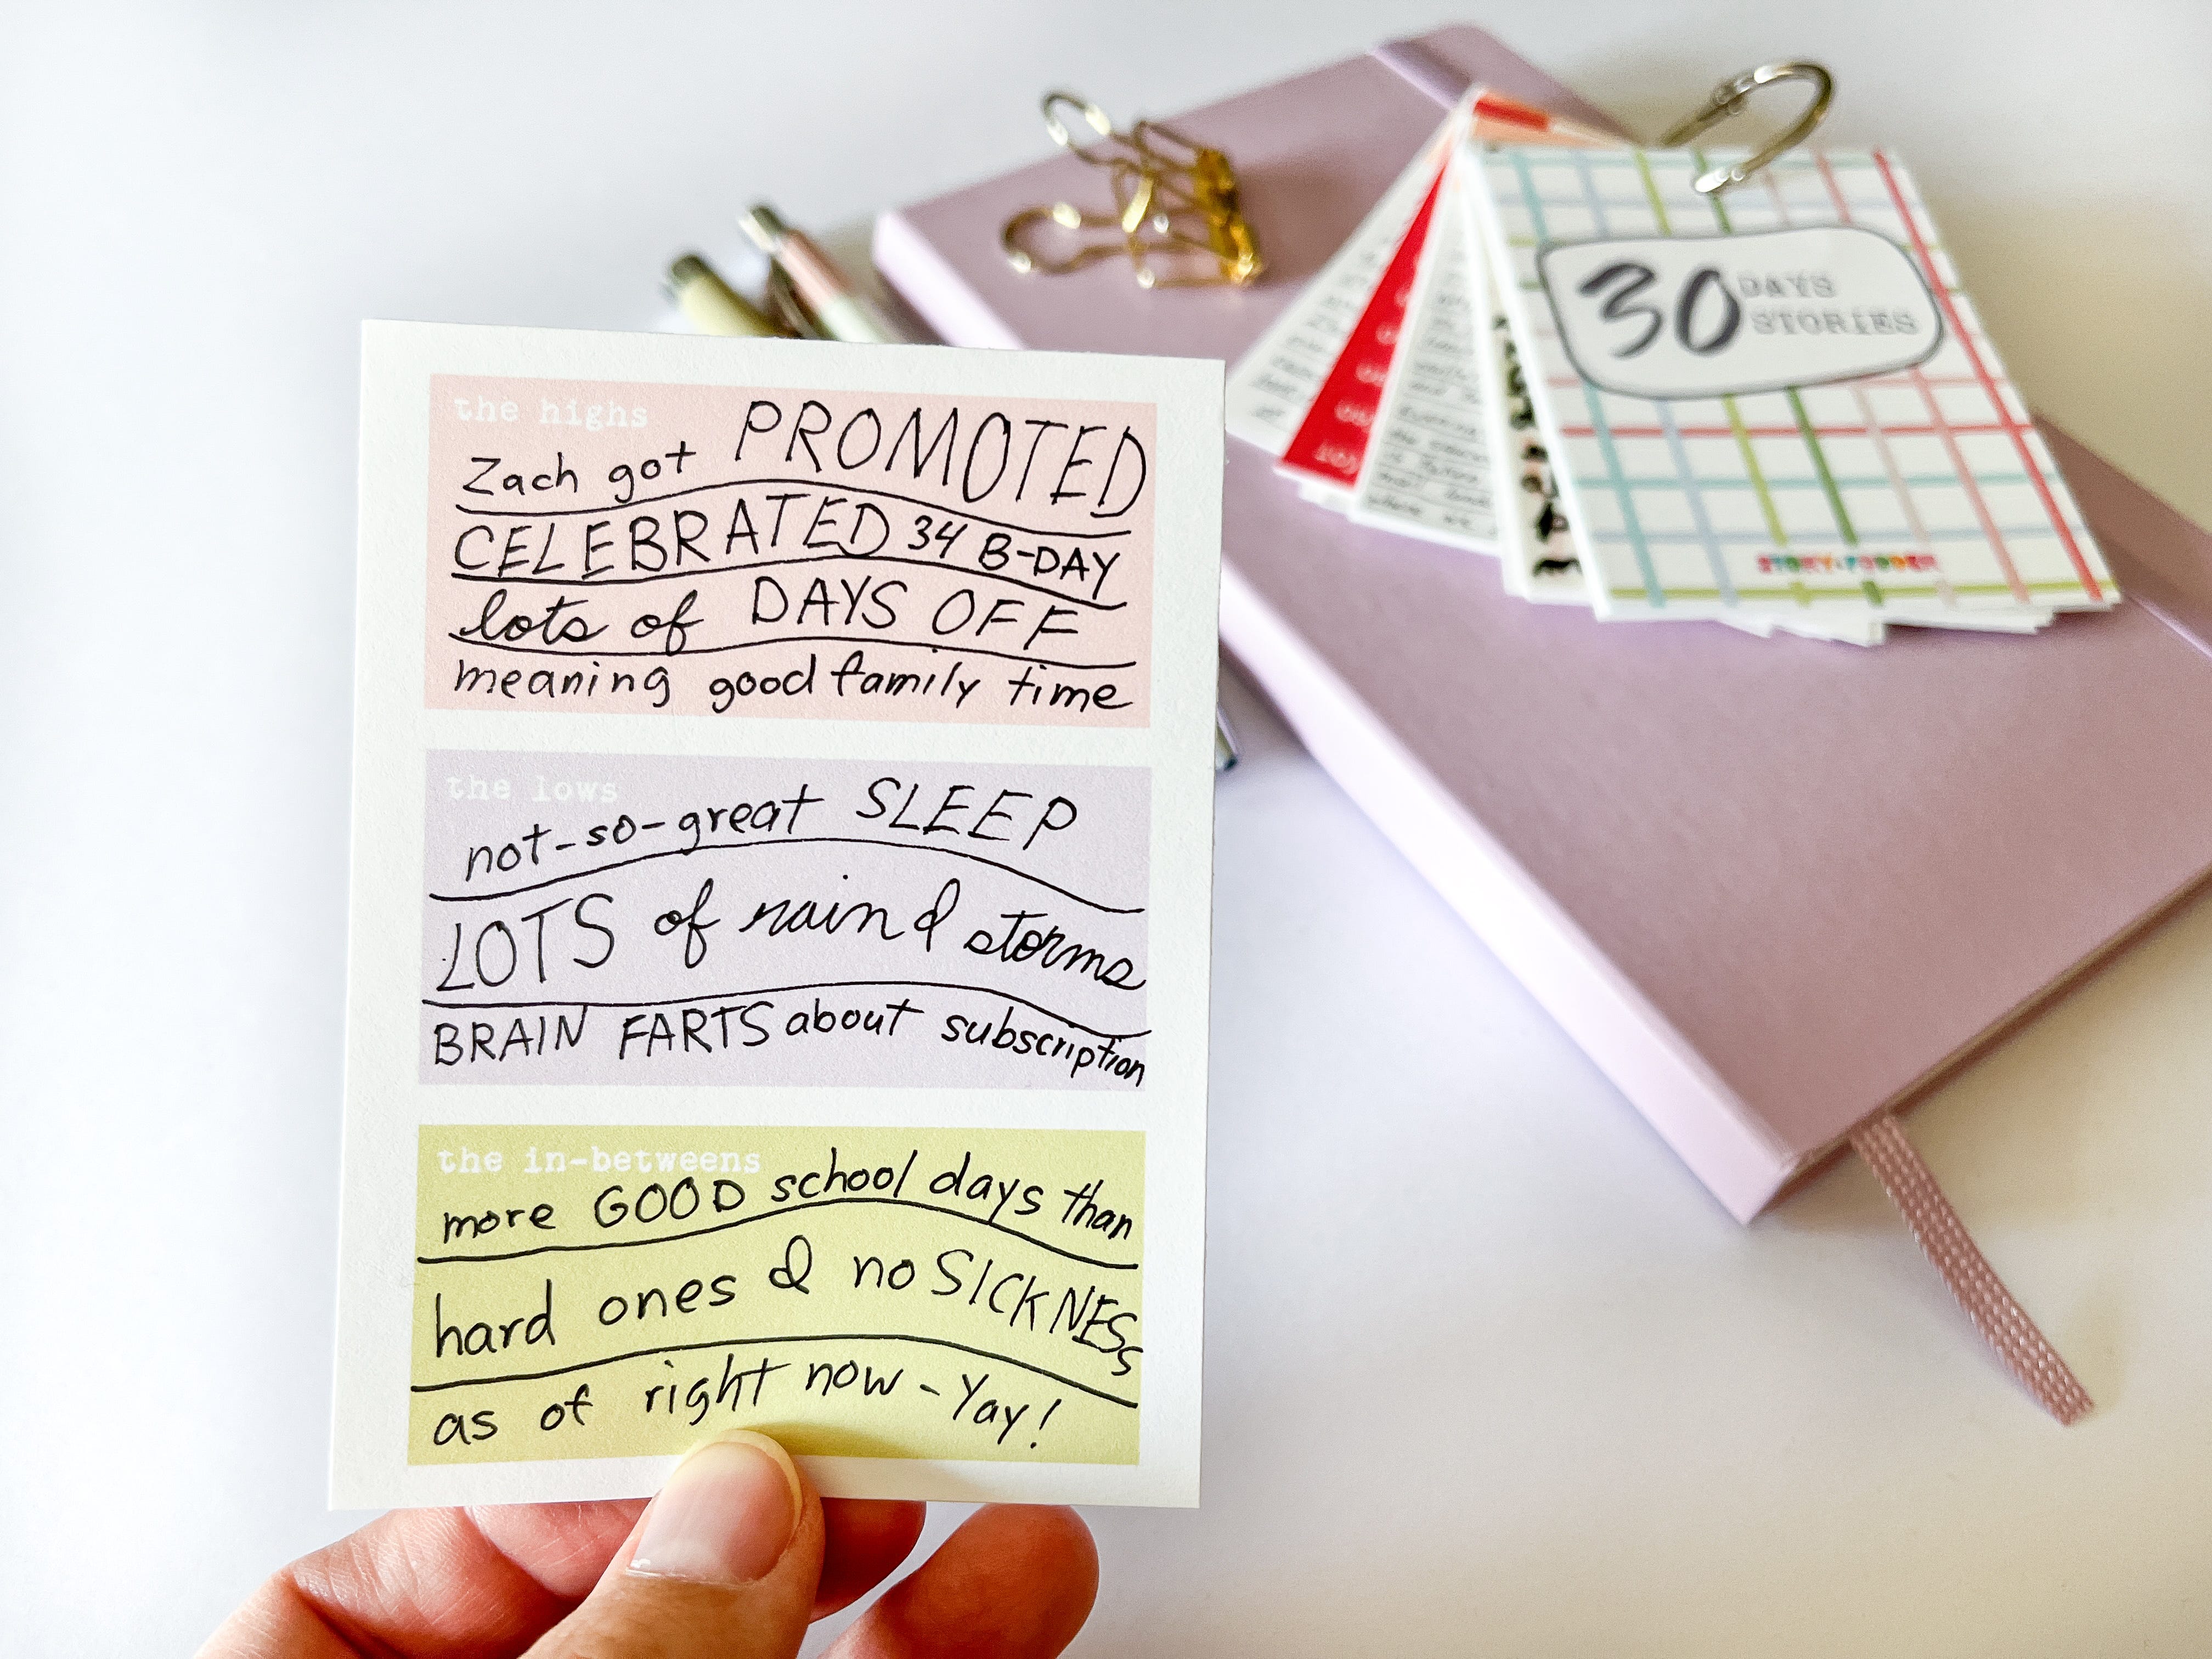 the highs
Zach got PROMOTED
CELEBRATED 34 B-DAY
lots of DAYS OFF
meaning good family time
the lows
not-so-great SLEEP
LOTS of rain & storms
BRAIN FARTS about subscription
the in-betweens
more GOOD school days than
hard ones & no SICKNESS
as of right now - Yay!
30 DAYS
STORIES
STORY FODDER